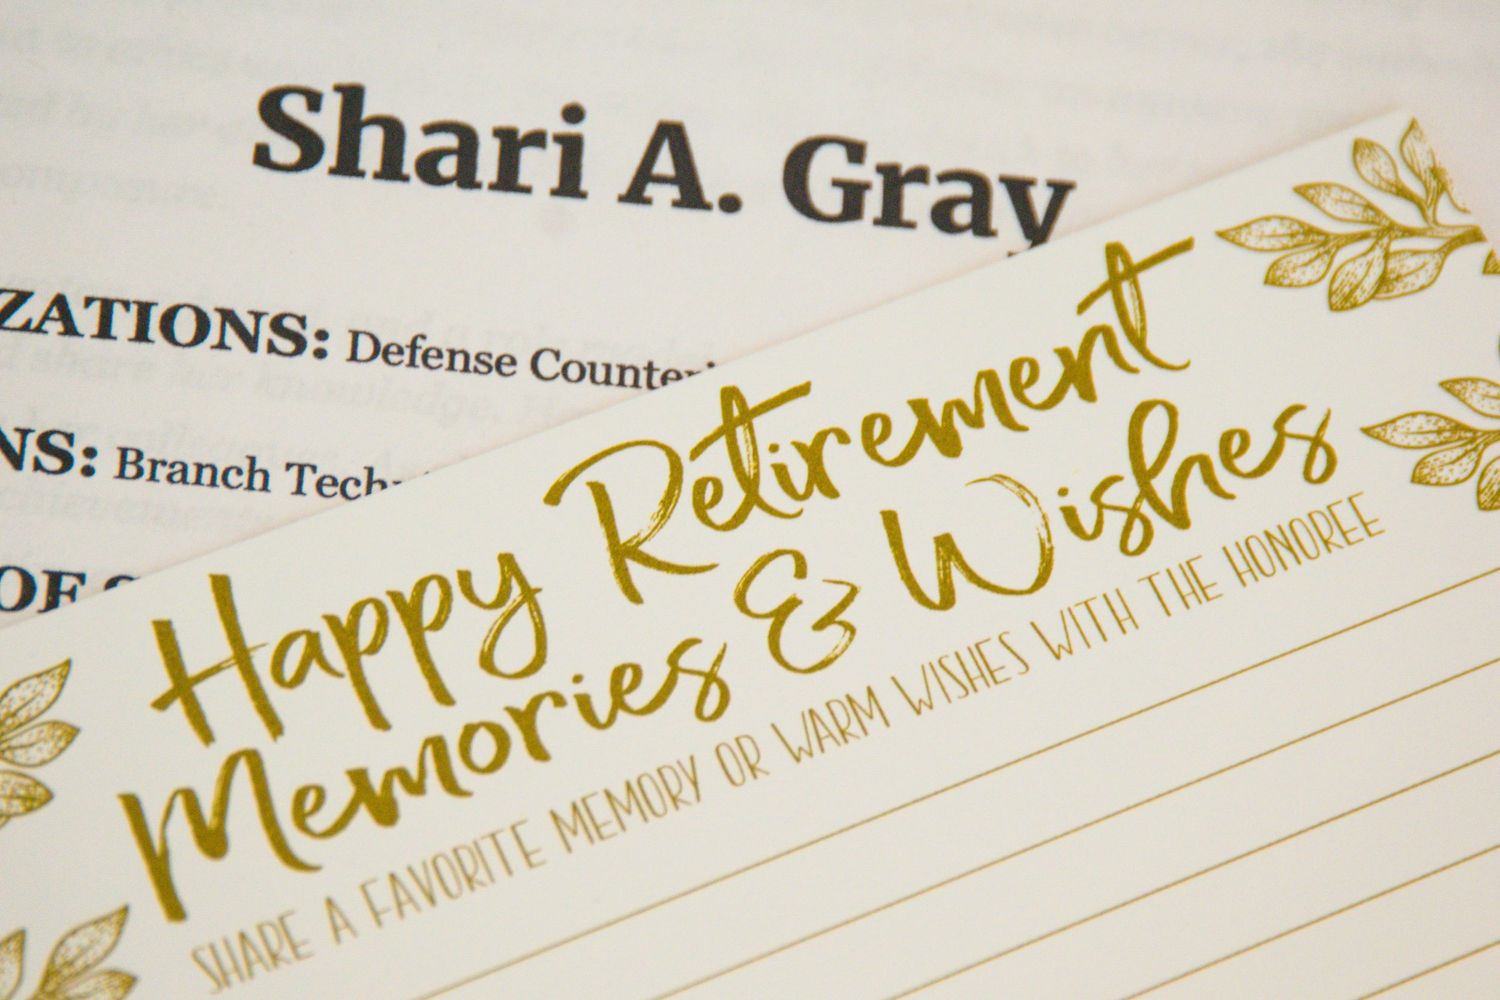 Shari A. Gray
ZATIONS: Defense Counter
NS: Branch Tech
OF
Happy Retirement
Memories & Wishes
SHARE A FAVORITE MEMORY OR WARM WISHES WITH THE HONOREE